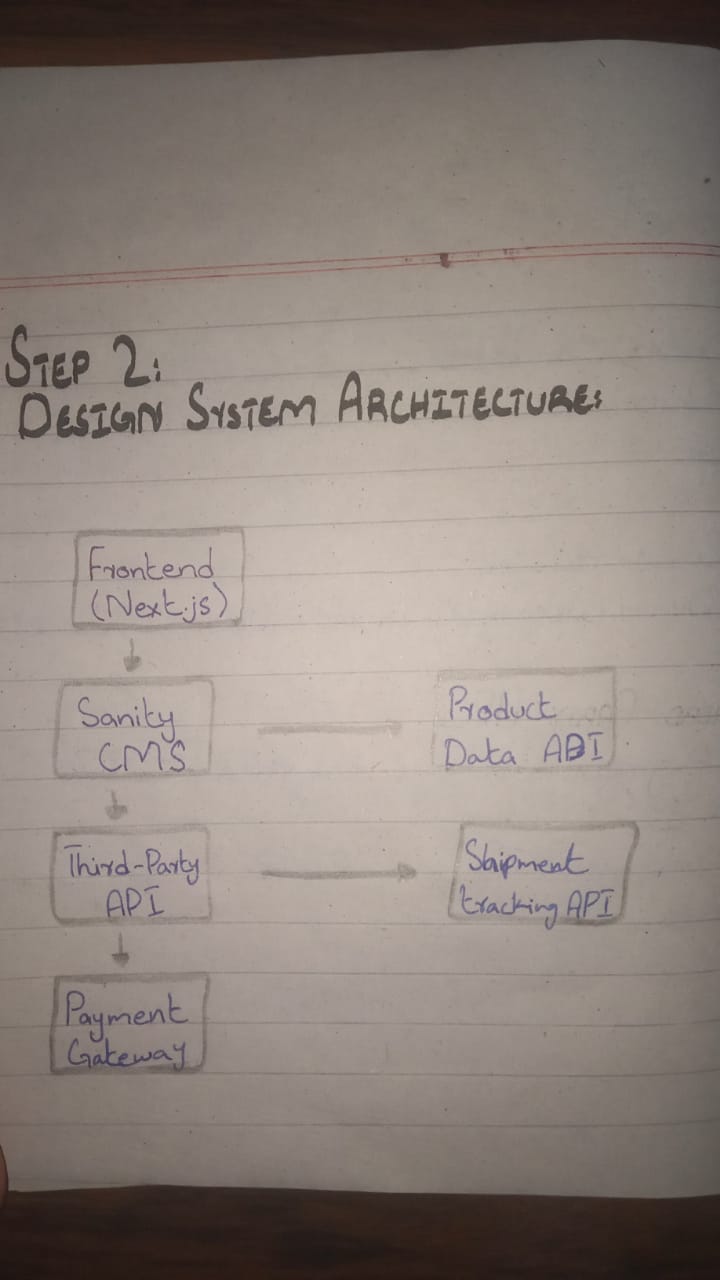 STEP 2:
DESIGN SYSTEM ARCHITECTURE:
Frontend
(Next.js)
Sanity
CMS
Product
Data API
Third-Party
API
Shipment
tracking API
Payment
Gateway